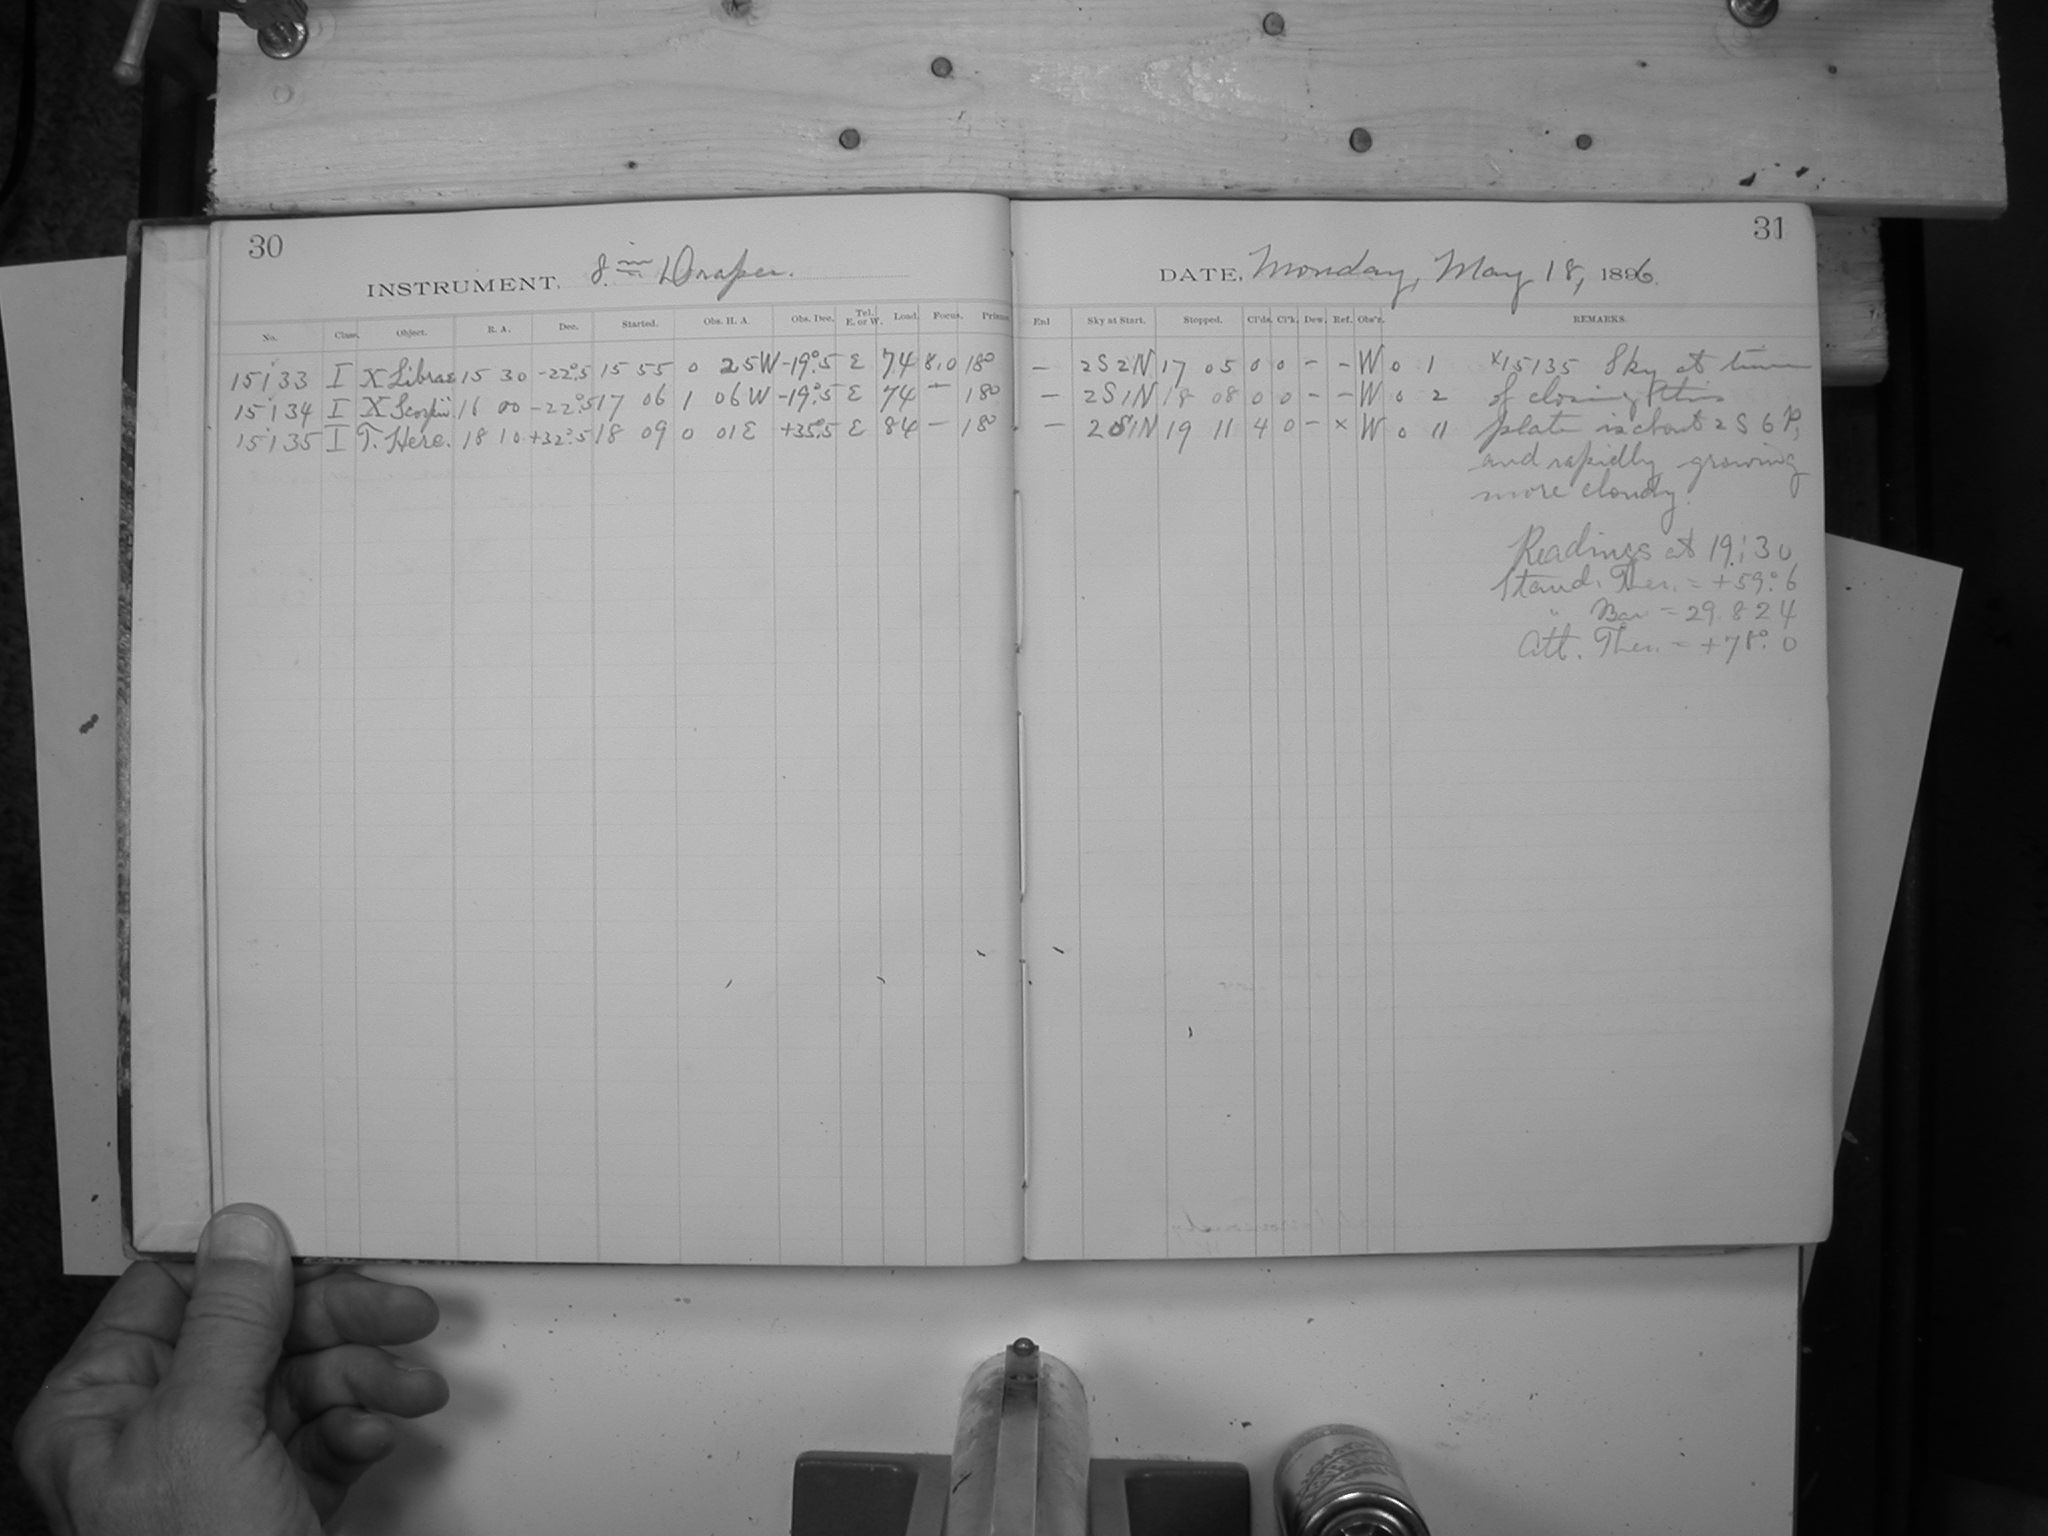 30
INSTRUMENT, 8 in Draper.
No. Class. Object. R. A. Dec. Started. Obs. H. A. Obs. Dec. Tel. E. or W. Load. Focus. Prisms.
15133 I X Librae 15 30 -22°.5 15 55 0 25W -19°.5 E 74 8.0 180
15134 I X Scorpii 16 00 -22°.5 17 06 1 06W -19°.5 E 74 — 180
15135 I T. Herc. 18 10 +32°.5 18 09 0 01E +35°.5 E 84 — 180
31
DATE, Monday, May 18, 1896.
Exl Sky at Start. Stopped. Cl'ds. Cl'k. Dew. Ref. Obs'r. REMARKS.
— 2S2N 17 05 0 0 - - W 0 1 x15135 Sky at time
— 2S1N 18 08 0 0 - - W 0 2 of closing this
— 2S1N 19 11 4 0 - x W 0 11 plate is about 2 S 6 P,
and rapidly growing
more cloudy.
Readings at 19:30
Stand. Ther. = +59°.6
" Bar = 29.824
Att. Ther. = +78°.0